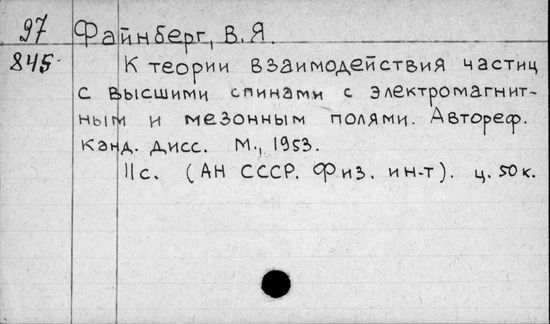 97 Файнберг, В.Я.
845. К теории взаимодействия частиц
с высшими спинами с электромагнит-
ным и мезонным полями. Автореф.
канд. дисс. М., 1953.
11с. (АН СССР. Физ. ин-т). ц. 50к.